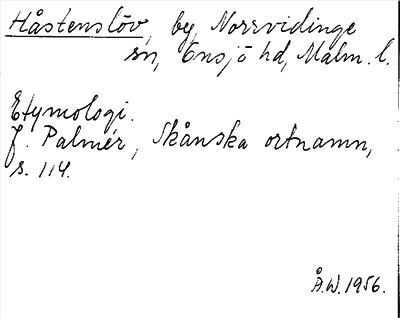 Håstenslöv, by, Norrvidinge
sn, Onsjö hd, Malm. l.
Etymologi.
J. Palmér, Skånska ortnamn,
s. 114.
Å.W. 1956.